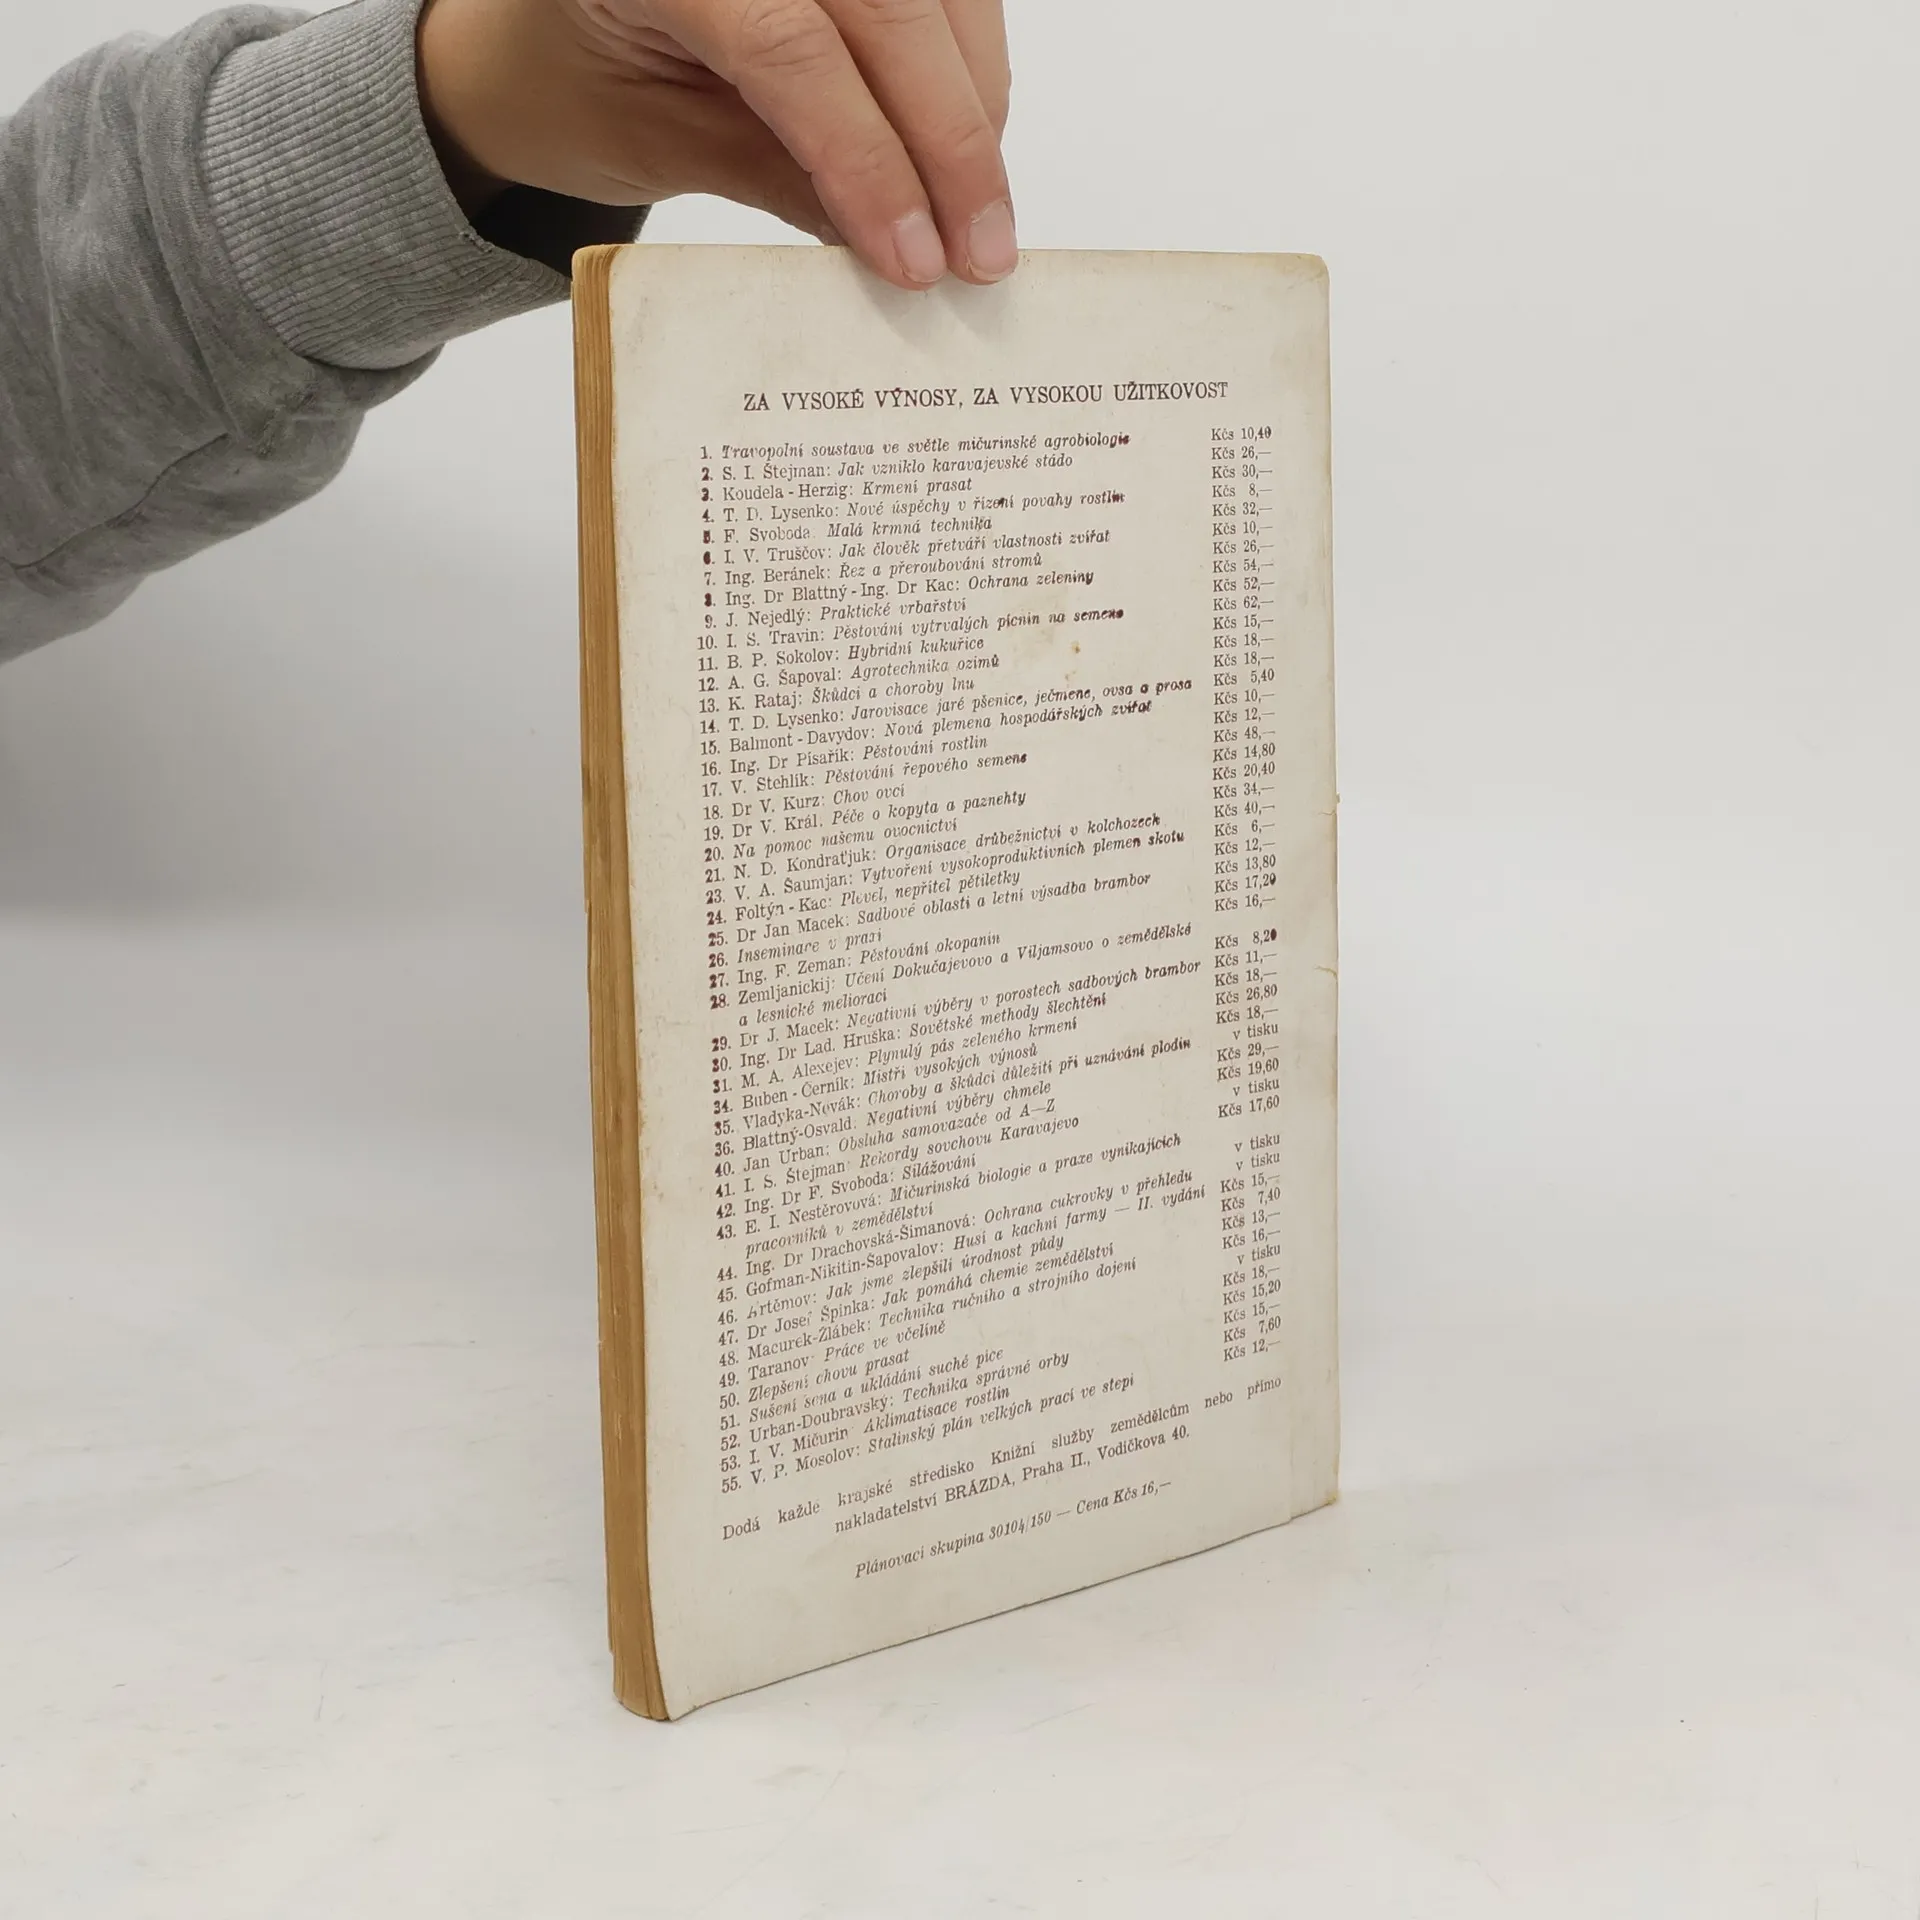 ZA VYSOKÉ VÝNOSY, ZA VYSOKOU UŽITKOVOST
1. Travopolní soustava ve světle mičurinské agrobiologie Kčs 10,40
2. S. I. Štejman: Jak vzniklo karavajevské stádo Kčs 26,—
3. Koudela - Herzig: Krmení prasat Kčs 30,—
4. T. D. Lysenko: Nové úspěchy v řízení povahy rostlin Kčs 8,—
5. F. Svoboda: Malá krmná technika Kčs 32,—
6. I. V. Truščov: Jak člověk přetváří vlastnosti zvířat Kčs 10,—
7. Ing. Beránek: Řez a přeroubování stromů Kčs 26,—
8. Ing. Dr Blattný - Ing. Dr Kac: Ochrana zeleniny Kčs 54,—
9. J. Nejedlý: Praktické vrbařství Kčs 52,—
10. I. S. Travin: Pěstování vytrvalých pícnin na semeno Kčs 62,—
11. B. P. Sokolov: Hybridní kukuřice Kčs 15,—
12. A. G. Šapoval: Agrotechnika ozimů Kčs 18,—
13. K. Rataj: Škůdci a choroby lnu Kčs 18,—
14. T. D. Lysenko: Jarovisace jaré pšenice, ječmene, ovsa a prosa Kčs 5,40
15. Balmont - Davydov: Nová plemena hospodářských zvířat Kčs 10,—
16. Ing. Dr Písařík: Pěstování rostlin Kčs 12,—
17. V. Stehlík: Pěstování řepového semene Kčs 48,—
18. Dr V. Kurz: Chov ovcí Kčs 14,80
19. Dr V. Král. Péče o kopyta a paznehty Kčs 20,40
20. Na pomoc našemu ovocnictví Kčs 34,—
21. N. D. Kondraťjuk: Organisace drůbežnictví v kolchozech Kčs 40,—
23. V. A. Šaumjan: Vytvoření vysokoproduktivních plemen skotu Kčs 6,—
24. Foltýn - Kac: Plevel, nepřítel pětiletky Kčs 12,—
25. Dr Jan Macek: Sadbové oblasti a letní výsadba brambor Kčs 13,80
26. Inseminace v praxi Kčs 17,20
27. Ing. F. Zeman: Pěstování okopanin Kčs 16,—
28. Zemljanickij: Učení Dokučajevovo a Viljamsovo o zemědělské
a lesnické melioraci Kčs 8,20
29. Dr J. Macek: Negativní výběry v porostech sadbových brambor Kčs 11,—
30. Ing. Dr Lad. Hruška: Sovětské methody šlechtění Kčs 18,—
31. M. A. Alexejev: Plynulý pás zeleného krmení Kčs 26,80
34. Buben - Černík: Mistři vysokých výnosů Kčs 18,—
35. Vladyka-Novák: Choroby a škůdci důležití při uznávání plodin v tisku
36. Blattný-Osvald: Negativní výběry chmele Kčs 29,—
40. Jan Urban: Obsluha samovazače od A—Z Kčs 19,60
41. I. S. Štejman: Rekordy sovchovu Karavajevo v tisku
42. Ing. Dr F. Svoboda: Silážování Kčs 17,60
43. E. I. Nestěrovová: Mičurinská biologie a praxe vynikajících
pracovníků v zemědělství v tisku
44. Ing. Dr Drachovská-Šimanová: Ochrana cukrovky v přehledu v tisku
45. Gofman-Nikitin-Šapovalov: Husí a kachní farmy — II. vydání Kčs 15,—
46. Artěmov: Jak jsme zlepšili úrodnost půdy Kčs 7,40
47. Dr Josef Špinka: Jak pomáhá chemie zemědělství Kčs 13,—
48. Macurek-Žlábek: Technika ručního a strojního dojení Kčs 16,—
49. Taranov: Práce ve včelíně v tisku
50. Zlepšení chovu prasat Kčs 18,—
51. Sušení sena a ukládání suché píce Kčs 15,20
52. Urban-Doubravský: Technika správné orby Kčs 15,—
53. I. V. Mičurin: Aklimatisace rostlin Kčs 7,60
55. V. P. Mosolov: Stalinský plán velkých prací ve stepi Kčs 12,—
Dodá každé krajské středisko Knižní služby zemědělcům nebo přímo
nakladatelství BRÁZDA, Praha II., Vodičkova 40.
Plánovací skupina 30104/150 — Cena Kčs 16,—